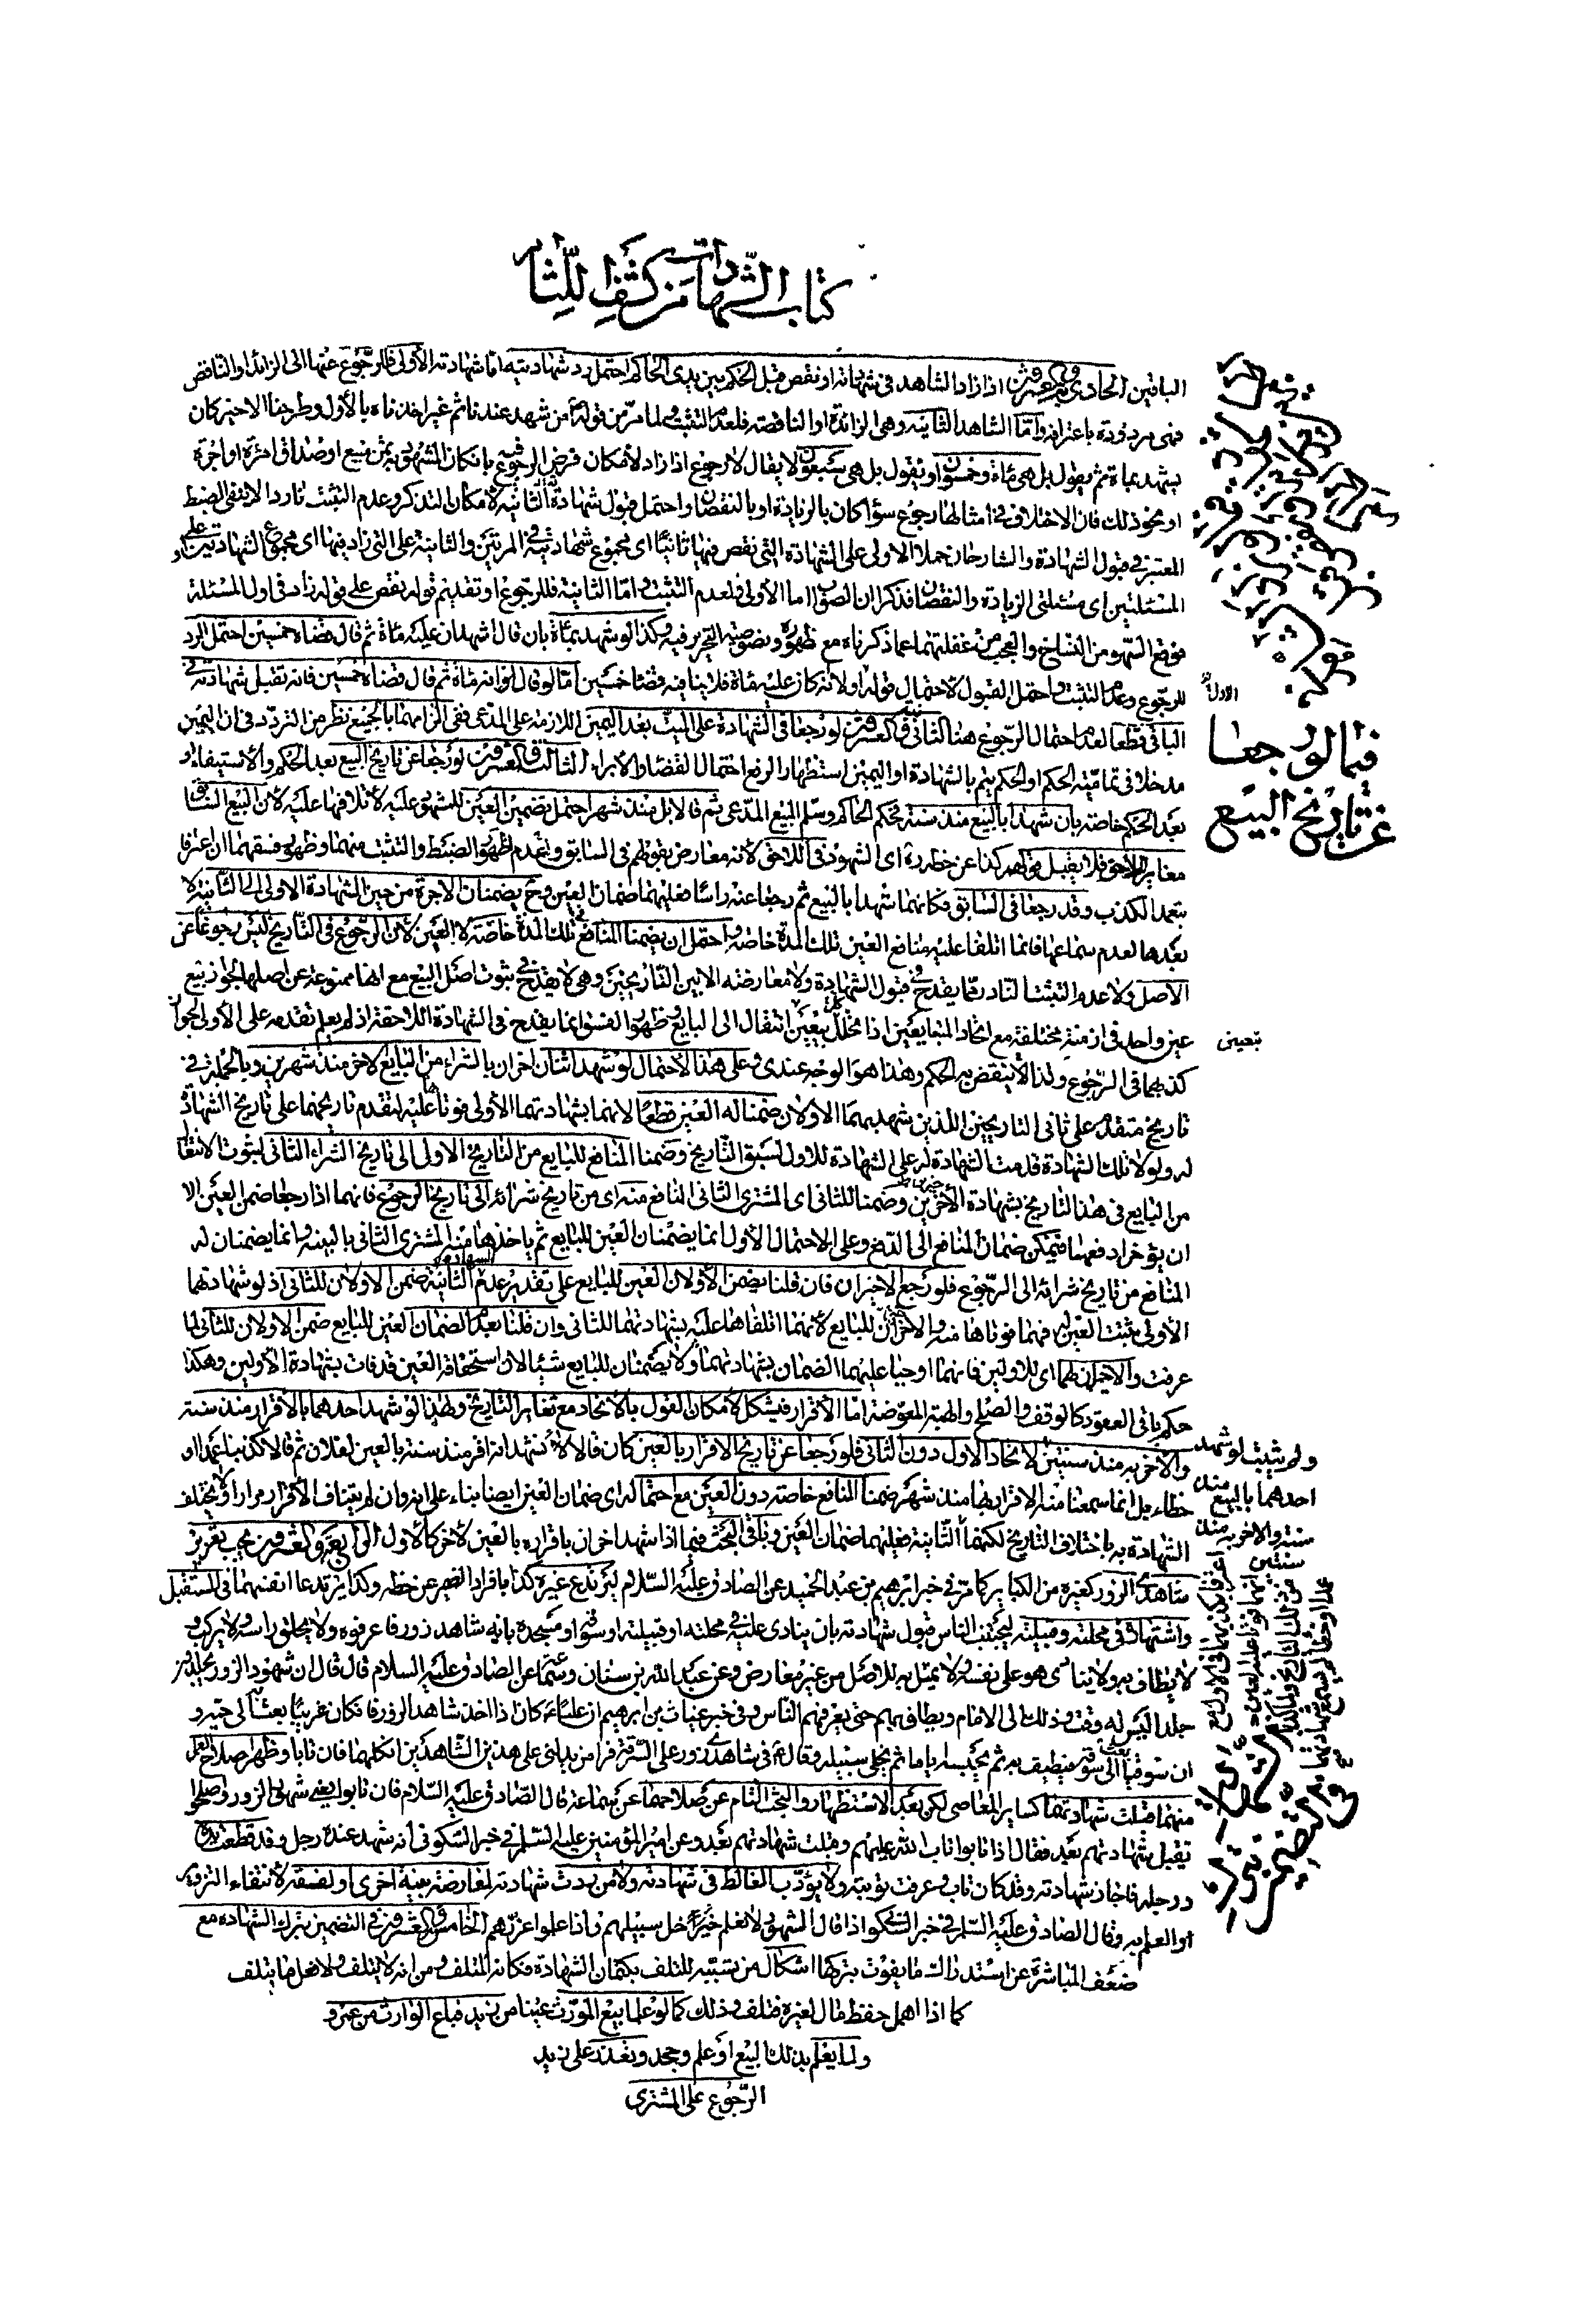 كتاب الشهادات من كشف اللثام
الباقين الحادى والعشرون اذا زاد الشاهد فى شهادته او نقص قبل الحكم بين يدى الحاكم احتمل رد شهادتيه اما شهادته الأولى فللرجوع عنها الى الزائد او الناقص
فهى مردودة باعترافه واما الشاهد الثانيه وهى الزائدة او الناقصة فلعدم التثبت ولما مر من قوله من شهد عندنا ثم غير اخذناه بالأول وطرحنا الاخير كان
يشهد بماة ثم يقول بل هى مائة وخمسون او يقول بل هى سبعون لا يقال لا رجوع اذا زاد لأمكان فرض الرجوع فيه بانكان المشهود به ثمن مبيع او صداق امرأة او اجرة
او نحو ذلك فان الاختلاف فى امثالها رجوع سواء كان بالزيادة او بالنقصان واحتمل قبول شهادته الثانيه لأمكان التذكر وعدم التثبت نادرا لا ينفى الضبط
المعتبر فى قبول الشهادة والشارحان حملا الاولى على الشهادة التى نقص فيها ثانيا اى مجموع شهادتيه فى المرتين والثانية على التى زاد فيها اى مجموع الشهادتين على
المسئلتين اى مسئلتى الزيادة والنقصان فذكرا ان الصواب اما الأولى فلعدم التثبت واما الثانية فللرجوع او تقديم قوله نقص على قوله زاد فى اول المسئلة
فوقع السهو من النساخ والعجب من غفلتهما عما ذكرناه مع ظهوره ونصوصية التحرير فيه وكذا لو شهد بمأة بان قال اشهد ان عليه مأة ثم قال قضاه خمسين احتمل الرد
للرجوع وعدم التثبت واحتمل القبول لاحتمال قوله اولا انه كان عليه مأة فلا ينافيه قضاء خمسين اما لو قال اولا انه مأة ثم قال قضاه خمسين فانه تقبل شهادته فى
الباقى قطعا لعدم احتمال الرجوع هنا الثانى والعشرون لو رجعا فى الشهادة على الميت بعد اليمين اللازمة على المدعى ففى الزامهما بالجميع نظر من التردد فى ان اليمين
مدخلا فى تمامية الحكم او الحكم يتم بالشهادة او اليمين استظهار لرفع احتمال القضاء او الأبراء الثالث والعشرون لو رجعا عن تاريخ البيع بعد الحكم والأستيفاء او
بعد الحكم خاصة بان شهدا بالبيع منذ سنة فحكم الحاكم وسلم المبيع المدعى ثم قالا بل منذ شهر احتمل تضمين العين للمشهود عليه لأتلافها عليه لأن البيع السابق
مغاير للاحق فلا يقبل قولهم كذا عن خطه ره اى الشهود فى اللاحق لانه معارض بقولهم فى السابق ولعدم ظهور الضبط والتثبت منهما وظهور فسقهما ان اعترفا
بتعمد الكذب وقد رجعا فى السابق فكانهما شهدا بالبيع ثم رجعا عنه رأسا فعليهما ضمان العين وح يضمنان الاجرة من حين الشهادة الاولى الى الثانية لا
بعدها لعدم سماعها فانما اتلفا عليه منافع العين تلك المدة خاصة واحتمل ان يضمنا المنافع تلك المدة خاصة لا العين لأن الرجوع فى التاريخ ليس رجوعا عن
الاصل ولا عدم التثبت النادر مما يقدح فى قبول الشهادة ولا معارضه الا بين التاريخين وهى لا يقدح فى ثبوت اصل البيع مع انها ممنوعة عن اصلها لجواز بيع
عين واحد فى ازمنة مختلفة مع اتحاد المتبايعين اذا تخلل كل بيعين انتقال الى البايع وظهور الفسق انما يقدح فى الشهادة اللاحقة اذ لم يعلم تقدمه على الأولى لجواز
كذبهما فى الرجوع ولذا لا ينقض به الحكم وهذا هو الوجه عندى وعلى هذا الأحتمال لو شهد اثنان اخران بالشراء من البايع لاخر منذ شهرين وبالجملة فى
تاريخ متقدم على ثانى التاريخين اللذين شهد بهما الاولان ضمنا له العين قطعا لانهما بشهادتهما الأولى فوتاها عليه لتقدم تاريخهما على تاريخ الشهادة
له ولولا تلك الشهادة قدمت الشهادة له على الشهادة للاول لسبق التاريخ وضمنا المنافع للبايع من التاريخ الاولى الى تاريخ الشراء الثانى لثبوت الانتقال
من البايع فى هذا التاريخ بشهادة الأخرين وضمنا للثانى اى المشترى الثانى المنافع منه اى من تاريخ شرائه الى تاريخ الرجوع فانهما اذا رجعا ضمن العين الا
ان يؤخر ادفعها فيتمكن ضمان المنافع الى الدفع وعلى الاحتمال الأول انما يضمنان العين للبايع ثم ياخذها منه المشترى الثانى بالبينه وانما يضمنان له
المنافع من تاريخ شرائه الى الرجوع فلو رجع الاخيران فان قلنا يضمن الأولان العين للبايع على تقدير عدم الشهادة الثانية ضمن الاولان للثانى اذ لو شهادتهما
الأولى ثبتت العين له فهما فوتاها منه والاخران للبايع لأنهما اتلفاها عليه بشهادتهما للثانى وان قلنا بعدم الضمان العين للبايع ضمن الاولان للثانى لما
عرفت والاخيران لهما اى للاولين فانهما اوجبا عليهما الضمان بشهادتهما ولا يضمنان للبايع شيئا لان استحقاقه العين قد فات بشهادة الأولين وهكذا
حكم باقى العقود كالوقف والصلح والهبة المعوضة اما الأقرار فيشكل لأمكان القول بالاتحاد مع تغاير التاريخ ولهذا لو شهد احدهما بالاقرار منذ سنة
والاخر به منذ سنتين لاتحاد الاول دون الثانى فلو رجعا عن تاريخ الاقرار بالعين كان قالا لا نشهد انه اقر منذ سنة بالعين لفلان ثم قالا كذبنا عمدا او
خطاء بل انما سمعنا منه الاقرار بها منذ شهر ضمنا المنافع خاصة دون العين مع احتماله اى ضمان العين ايضا بناء على انه وان لم يتناف الأقرار مرارا ولا يختلف
الشهادة به باختلاف التاريخ لكنهما الثانية فعليهما ضمان العين وباقى البحث فيما اذا شهد اخران باقراره بالعين لأخر كالأول الرابع والعشرون يجب تعزير
شاهدى الزور كغيره من الكباير كما مر فى خبر ابرهيم بن عبد الحميد عن الصادق عليه السلام ليرتدع غيره كذا بافراد الضمير عن خطه وكذا يرتدعا انفسهما فى المستقبل
واشتهاره فى محلته وقبيلته ليجتنب الناس قبول شهادته بان ينادى عليه فى محلته او قبيلته او سوقه او مسجده بانه شاهد زور فاعرفوه ولا يحلق راسه ولا يركب و
لا يطاف به ولا ينادى هو على نفسه ولا يمثل به للاصل من غير معارض وعن عبد الله بن سنان وسماعة عن الصادق عليه السلام قال قال ان شهود الزور يجلدون
جلدا ليس له وقت وذلك الى الامام ويطاف بهم حتى يعرفهم الناس وفى خبر غياث بن ابرهيم ان عليا ع كان اذا اخذ شاهد الزور فان كان غريبا بعث به الى حيه و
ان سوقيا الى سوقه فيطيف به ثم يحبسه اياما ثم يخلى سبيله وقال فى شاهدى زور على السرقة فرا من يدلنى على هذين الشاهدين انكلهما فان تابا وظهر صلاح العمل
منهما قبلت شهادتهما كساير المعاصى لكن بعد الاستظهار والبحث التام عن صلاحهما عن سماعة قال الصادق عليه السلام فان تابوا يعنى شهود الزور واصلحوا
تقبل شهادتهم بعد فقال اذا تابوا تاب الله عليهم وقبلت شهادتهم بعد وعن امير المؤمنين عليه السلم فى خبر السكونى انه شهد عنده رجل وقد قطعت يده
ورجله فاجاز شهادته وقد كان تاب وعرفت توبته ولا يؤدب الغالط فى شهادته ولا من ردت شهادته لمعارضة بينة اخرى او لفسقه لأنتفاء التزوير
او العلم به وقال الصادق عليه السلم فى خبر السكونى اذا قال الشهود لا نعلم خل سبيلهم واذا علموا عزرهم الخامس والعشرون فى التضمين بترك الشهادة مع
ضعف المباشرة عن استدراك ما يفوت بتركها اشكال من تسببه للتلف بكتمان الشهادة فكانه المتلف ومن انه لا يتلف ولا فعل ما يتلف
كما اذا اهمل حفظ مال لغيره فتلف وذلك كما لو علما بيع المورث عينا من زيد فباع الوارث من عمرو
ولما يعلم بذلك البيع او علم وجحد وتعذر على زيد
الرجوع على المشترى
الاول
فيما لو رجعا
عن تاريخ البيع
بتعينى
ولم يثبت لو شهد
احدهما بالبيع منذ
سنة والاخر به منذ
سنتين